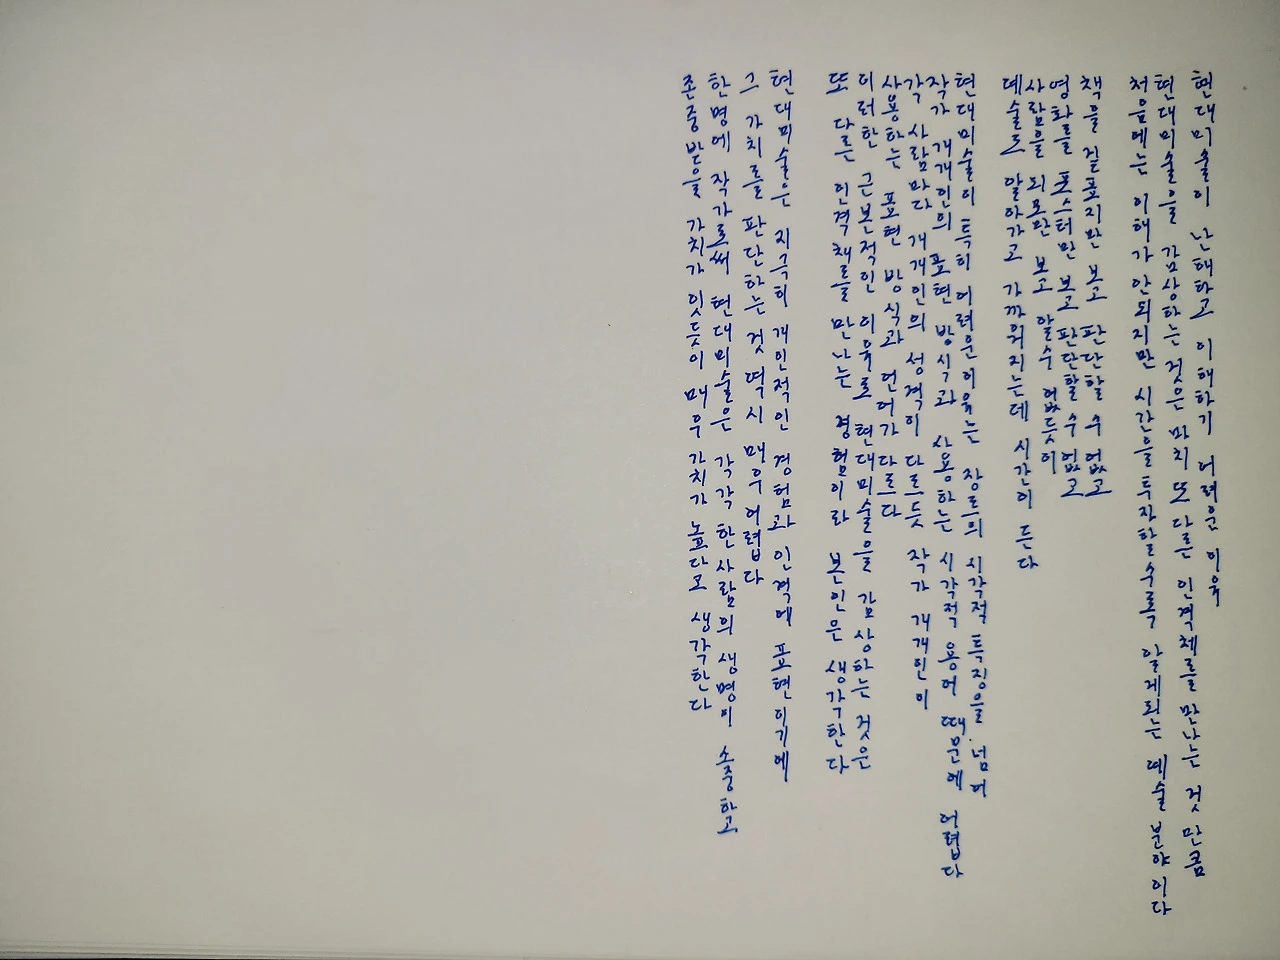 현대미술이 난해하고 이해하기 어려운 이유
현대미술을 감상하는 것은 마치 또 다른 인격체를 만나는 것 만큼
처음에는 이해가 안되지만 시간을 투자할수록 알게되는 예술 분야이다
책을 겉표지만 보고 판단할 수 없고
영화를 포스터만 보고 판단할 수 없고
사람을 외모만 보고 알수 없듯이
예술도 알아가고 가까워지는데 시간이 든다
현대미술이 특히 어려운이유는 장르의 시각적 특징을 넘어
작가 개개인의 표현 방식과 사용하는 시각적 용어 때문에 어렵다
각 사람마다 개개인의 성격이 다르듯 작가 개개인이
사용하는 표현 방식과 언어가 다르다
이러한 근본적인 이유로 현대미술을 감상하는 것은
또 다른 인격채를 만나는 경험이라 본인은 생각한다
현대미술은 지극히 개인적인 경험과 인격에 표현이기에
그 가치를 판단하는것 역시 매우 어렵다
한명에 작가로써 현대미술은 각각 한사람의 생명이 소중하고
존중받을 가치가 있듯이 매우 가치가 높다고 생각한다